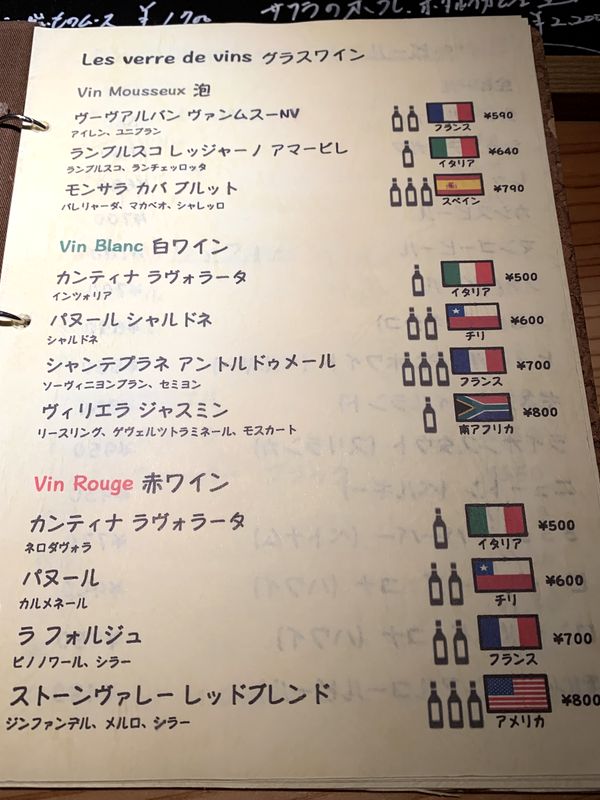 ¥1,700
Les verre de vins グラスワイン
Vin Mousseux 泡
ヴーヴアルバン ヴァンムスーNV ¥590
アイレン、ユニブラン フランス
ランブルスコ レッジャーノ アマービレ ¥640
ランブルスコ、ランチェッロッタ イタリア
モンサラ カバ ブルット ¥790
パレリャーダ、マカベオ、シャレッロ スペイン
Vin Blanc 白ワイン
カンティナ ラヴォラータ ¥500
インツォリア イタリア
パヌール シャルドネ ¥600
シャルドネ チリ
シャンテプラネ アントルドゥメール ¥700
ソーヴィニヨンブラン、セミヨン フランス
ヴィリエラ ジャスミン ¥800
リースリング、ゲヴェルツトラミネール、モスカート 南アフリカ
Vin Rouge 赤ワイン
カンティナ ラヴォラータ ¥500
ネロダヴォラ イタリア
パヌール ¥600
カルメネール チリ
ラ フォルジュ ¥700
ピノノワール、シラー フランス
ストーンヴァレー レッドブレンド ¥800
ジンファンデル、メルロ、シラー アメリカ